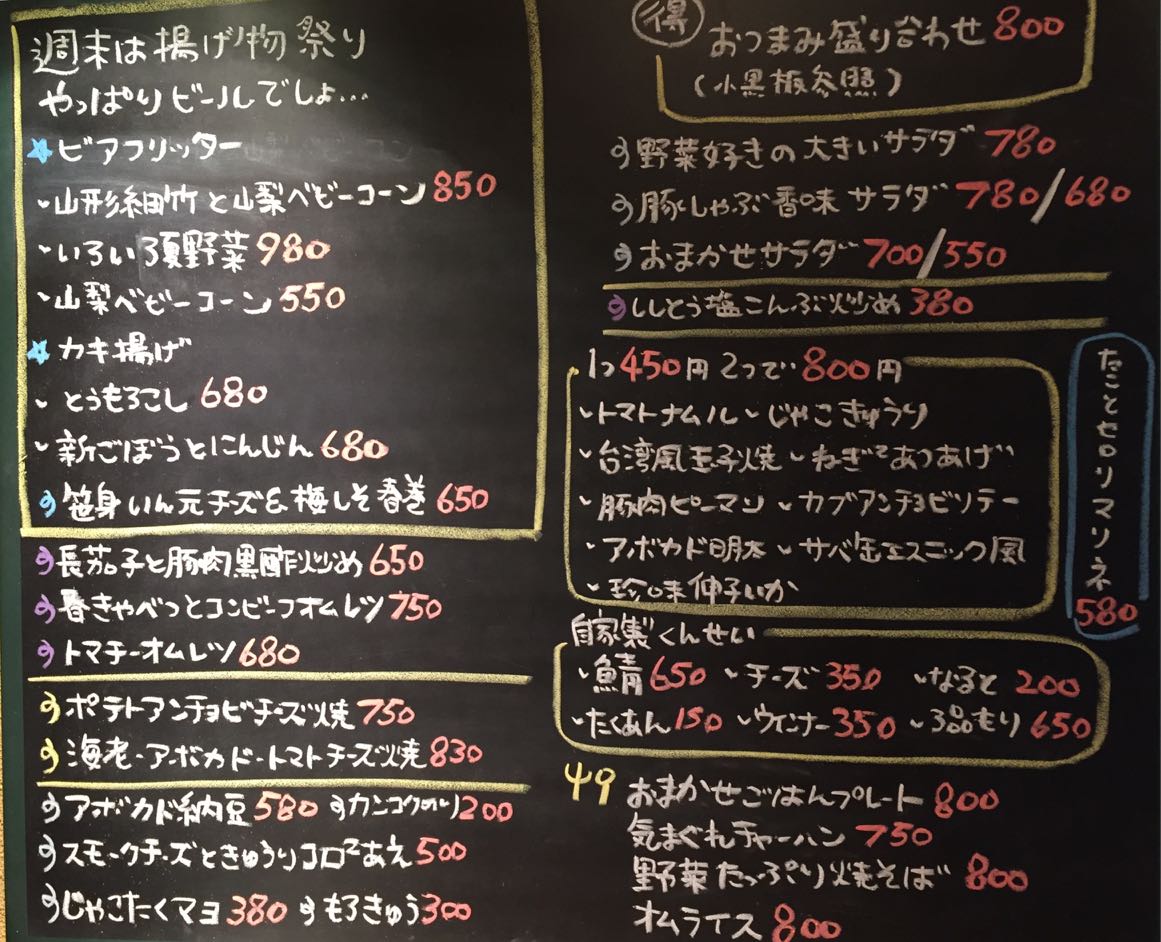 週末は揚げ物祭り
やっぱりビールでしょ…
ビアフリッター
山形細竹と山梨ベビーコーン 850
いろいろ夏野菜 980
山梨ベビーコーン 550
カキ揚げ
とうもろこし 680
新ごぼうとにんじん 680
笹身いん元チーズ&梅しそ春巻 650
長茄子と豚肉黒酢炒め 650
春きゃべつとコンビーフオムレツ 750
トマチーオムレツ 680
ポテトアンチョビチーズ焼 750
海老・アボカド・トマトチーズ焼 830
アボカド納豆 580 カンコクのり 200
スモークチーズときゅうりコロ²あえ 500
じゃこたくマヨ 380 もろきゅう 300
得 おつまみ盛り合わせ 800
(小黒板参照)
野菜好きの大きいサラダ 780
豚しゃぶ香味サラダ 780/680
おまかせサラダ 700/550
ししとう塩こんぶ炒め 380
1つ450円 2つで800円
トマトナムル じゃこきゅうり
台湾風玉子焼 ねぎ²あつあげ
豚肉ピーマン カブアンチョビソテー
アボカド明太 サバ缶エスニック風
珍味伸子いか
たことセロリマリネ 580
自家製くんせい
鯖 650 チーズ 350 なると 200
たくあん 150 ウィンナー 350 3品もり 650
おまかせごはんプレート 800
気まぐれチャーハン 750
野菜たっぷり焼そば 800
オムライス 800